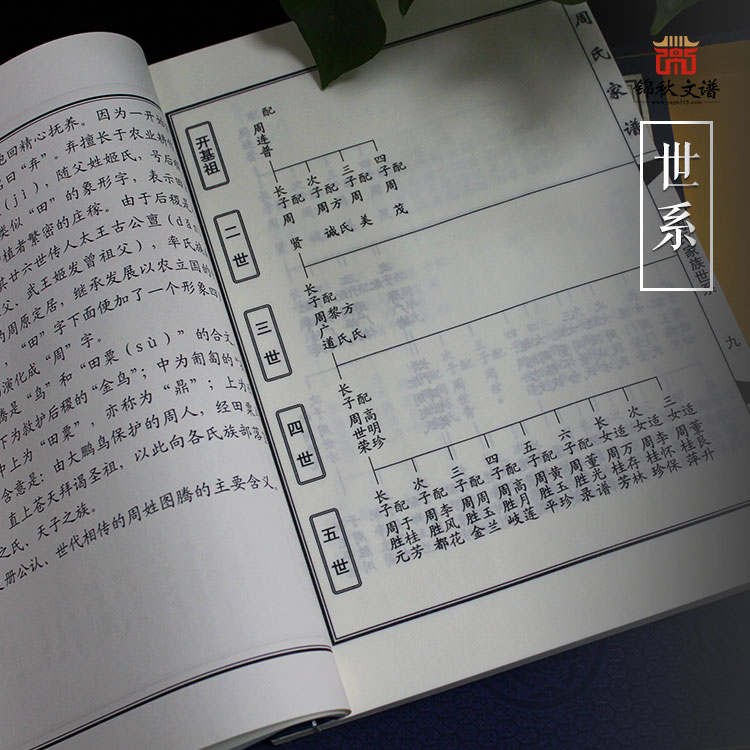 回精心抚养。因为一开
曰“弃”。弃擅长于农业耕
(jì)，随父姓姬氏，号后稷
类似“田”的象形字，表示田
植者繁密的庄稼。由于后稷是
其廿六世传人太王古公亶(dǎ
父、武王姬发曾祖父)，率氏族
的周原定居，继承发展以农立国的
“田”字下面便加了一个形象
演化成“周”字。
腾是“鸟”和“田粟(sù)”的合文
下为救护后稷的“金鸟”；中为匍匐的
中上为“田粟”，亦称为“鼎”；上为
含意是：由大鹏鸟保护的周人，经田粟
直上苍天拜谒圣祖，以此向各氏族部落
之氏、天子之族。
册公认、世代相传的周姓图腾的主要含义
周氏家谱
家族世系
九
开基祖
周连普
配
长子周贤
配周
次子周诚
配方氏
三子周美
四子周茂
配
二世
长子周广道
配黎氏
方氏
三世
长子周世荣
配高明珍
四世
长子周胜元
配于桂芳
次子周胜都
配李凤花
三子周胜金
配周玉兰
四子周胜岐
配高月莲
五子周胜平
配黄玉珍
六子周胜录
配董光谱
长女周桂芳
适万存林
次女周桂珍
适李怀保
三女周桂萍
适董良升
五世
锦秋文谱
世系